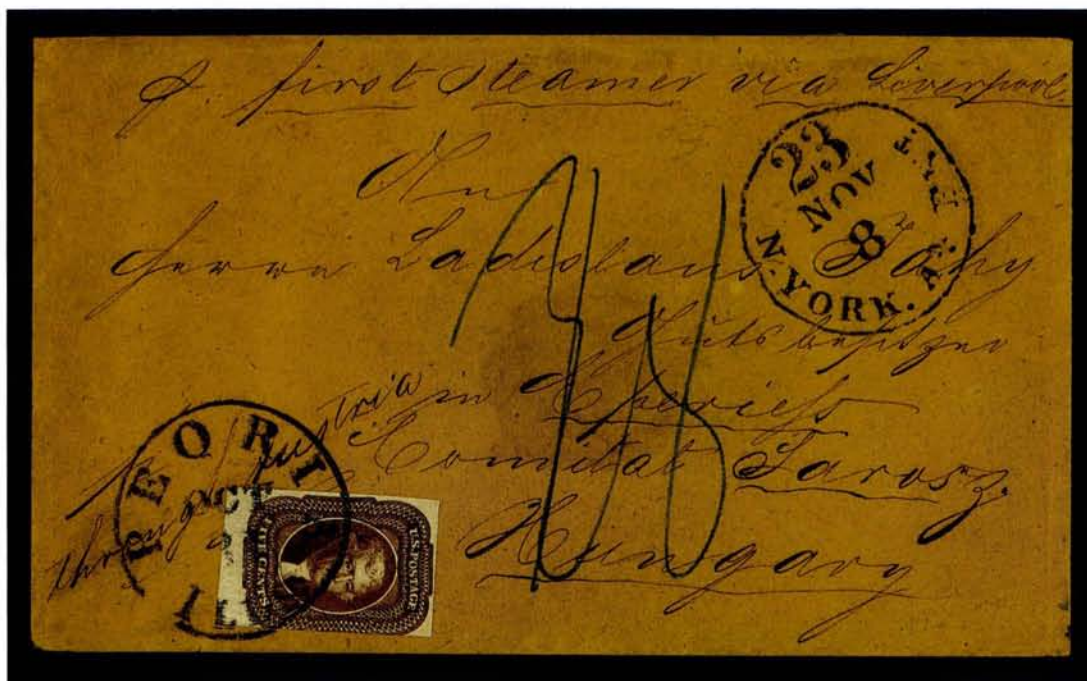 p. first steamer via Liverpool.
An
Herrn Ladislaus
Gutsbesitzer
in Eperiess
Comitat Sarosz.
Hungary
through Austria
N. YORK. AM. PKT
23
NOV
8
PEORI
ILL
U.S. POSTAGE
FIVE CENTS